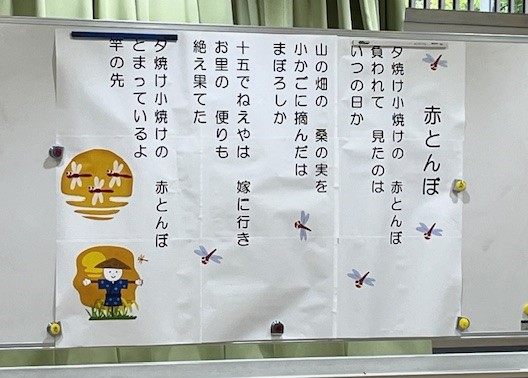 赤とんぼ
夕焼け小焼けの 赤とんぼ
負われて 見たのは
いつの日か
山の畑の 桑の実を
小かごに摘んだは
まぼろしか
十五でねえやは 嫁に行き
お里の 便りも
絶え果てた
夕焼け小焼けの 赤とんぼ
とまっているよ
竿の先